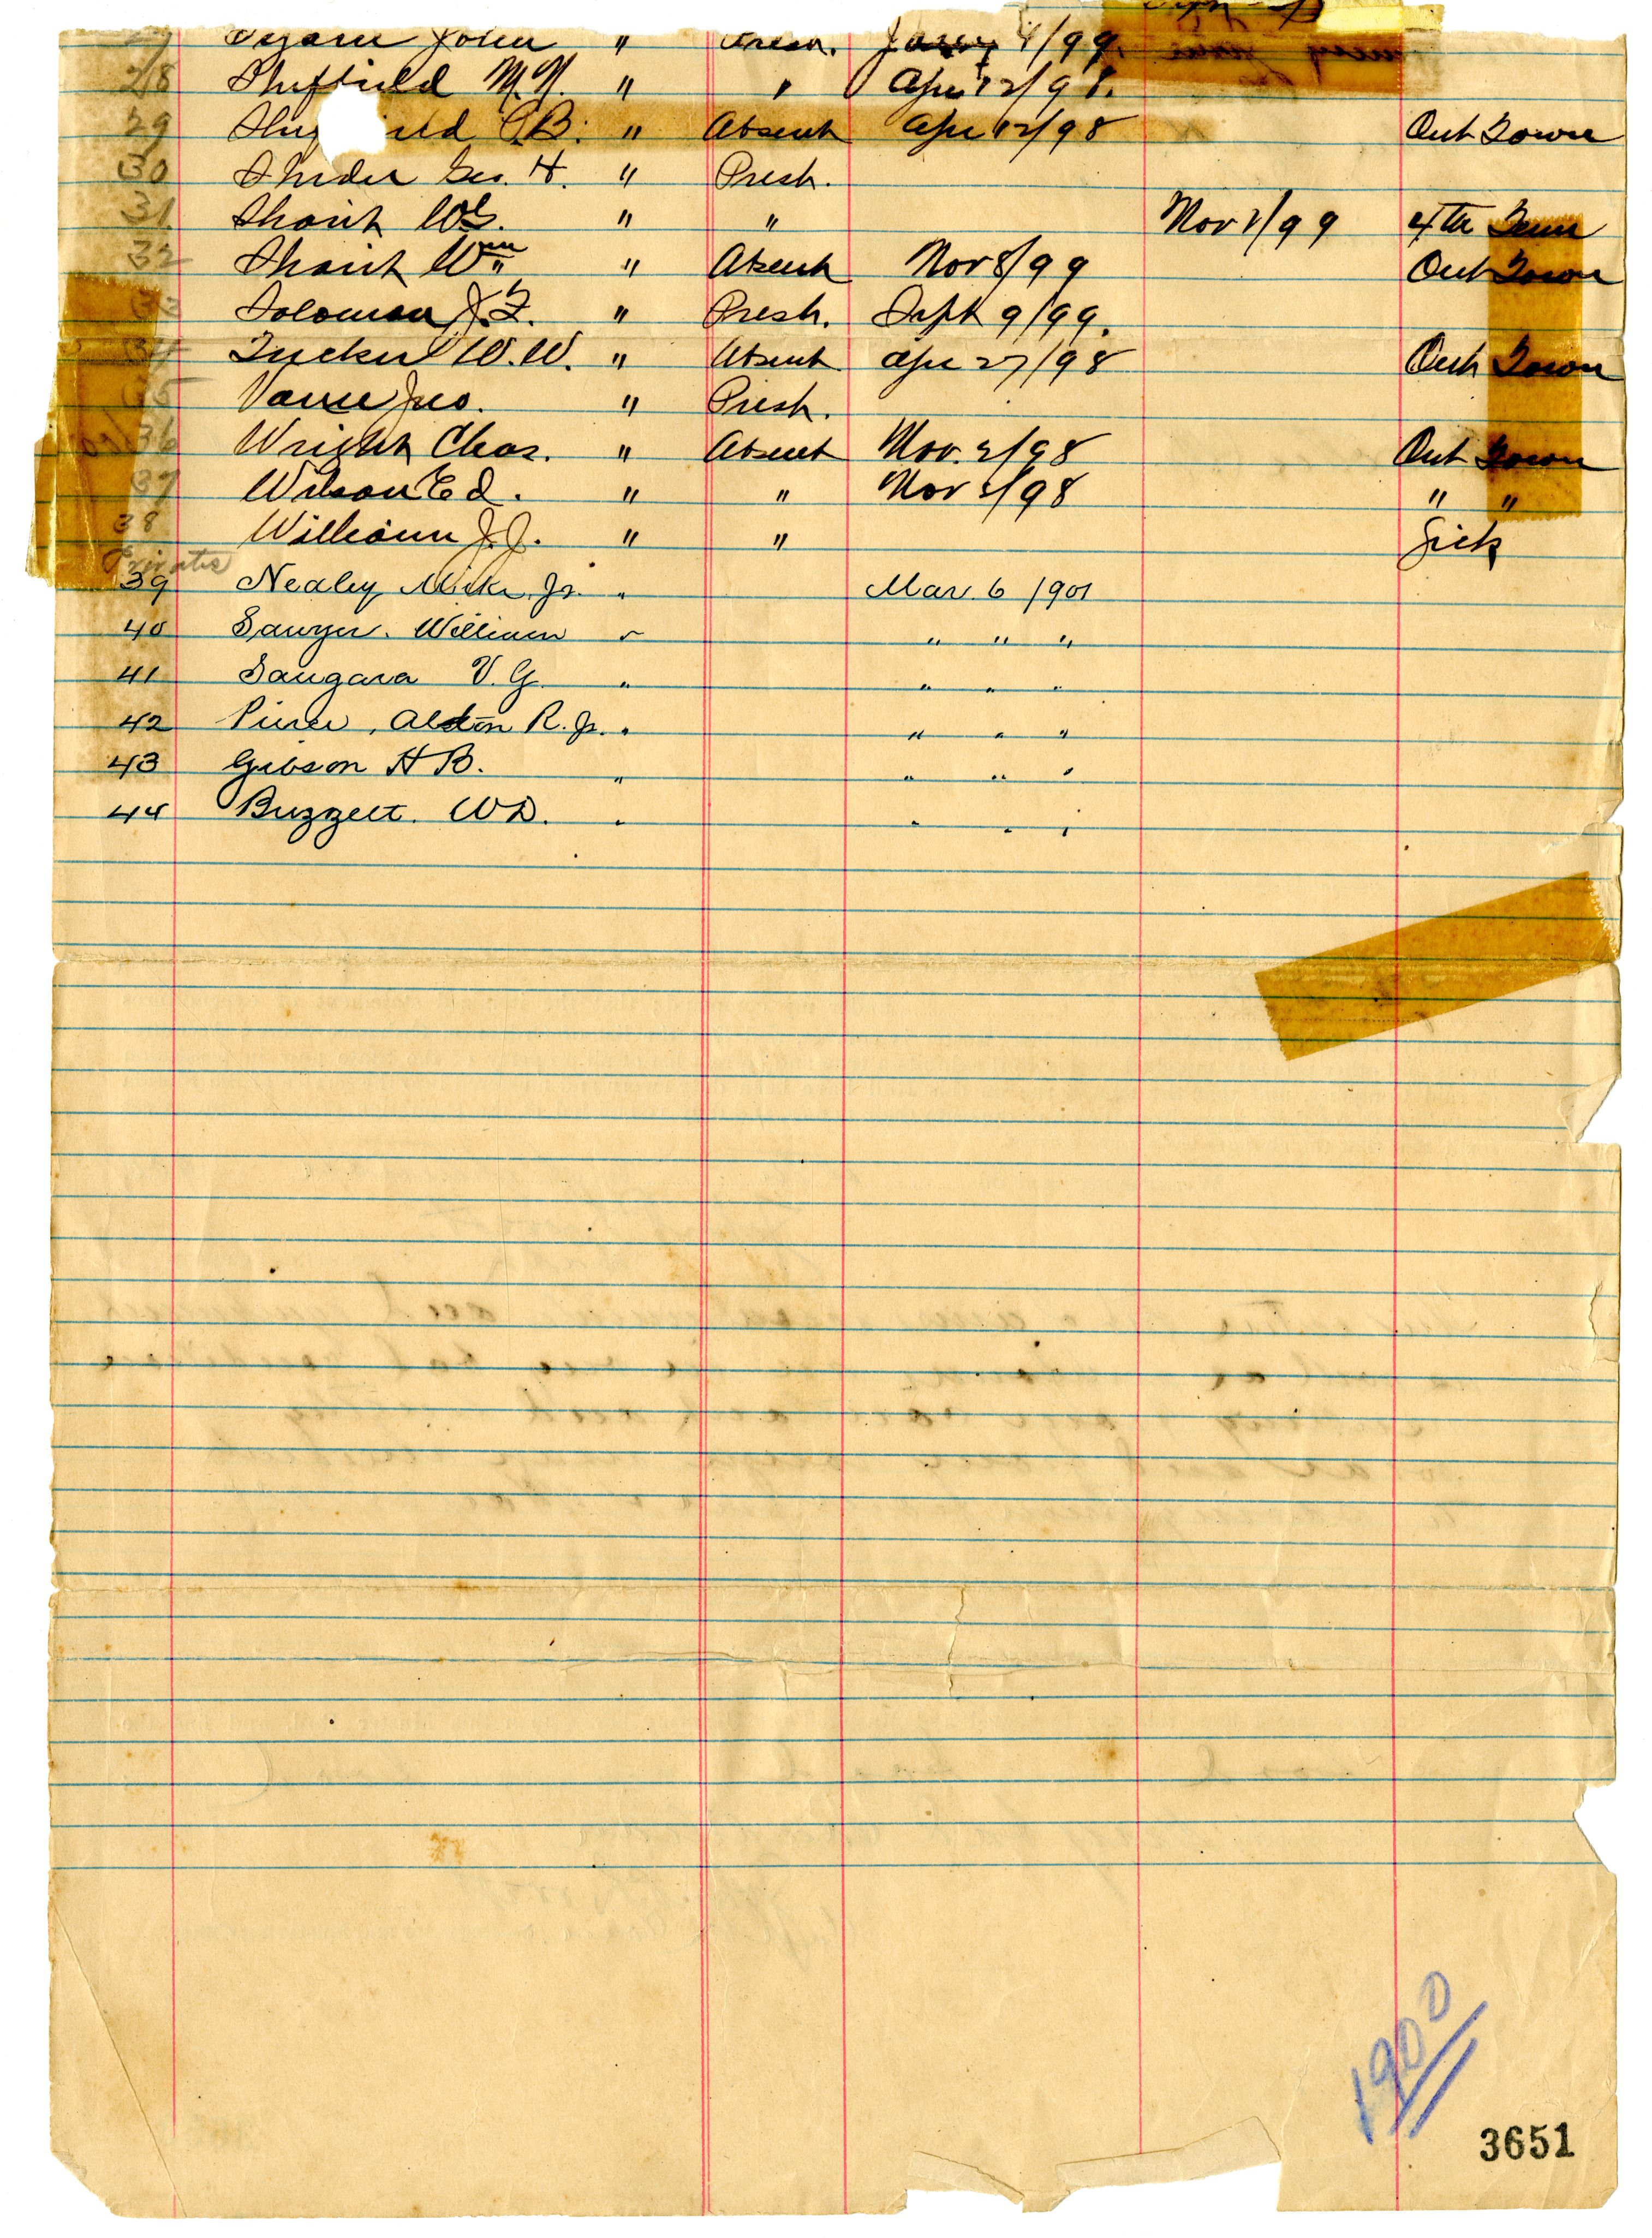 John " Presh. 4/99
28 Sheffield M.N. " " Apr 12/98.
29 ld C.B. " Absent Apr 12/98 Out Town
30 Shider Geo. H. " Presh.
31 W " " Nov 1/99 4th Term
32 Wm " Absent Nov 8/99 Out Town
33 Solomon J.F. " Presh. Sept 9/99.
34 Tucker W.W. " Absent Apr 27/98 Out Town
35 Jno. " Presh.
36 Wright Chas. " Absent Nov. 2/98 Out Town
37 Wilson Ed. " " Nov 2/98 " "
38 William J.J. " " Sick
Privates
39 Nealey Mike, Jr. " Mar. 6 1901
40 Sawyer. William " " " "
41 Sangara V.G. " " " "
42 Pierce, Alston R. Jr. " " " "
43 Gibson H B. " " " "
44 Buzzett. W D. " " " "
1900
3651